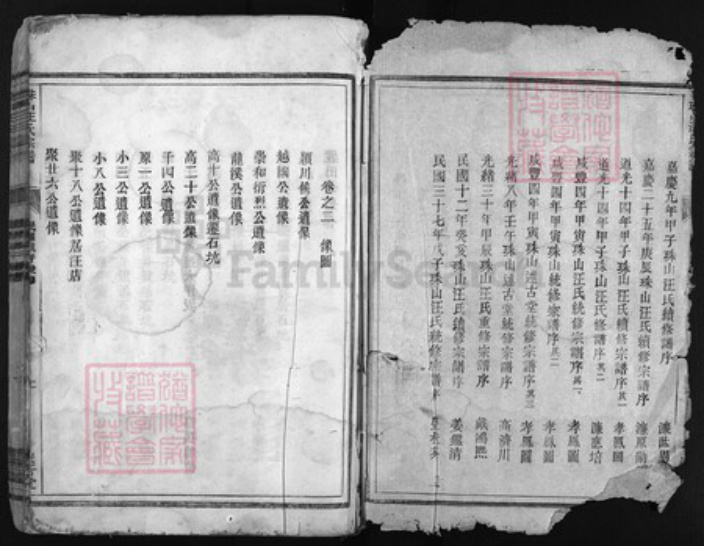 嘉慶九年甲子珠山汪氏續修譜序
嘉慶二十五年庚辰珠山汪氏續修宗譜序
道光十四年甲午珠山汪氏續修宗譜序其一 孝鳳圖
道光十四年甲午珠山汪氏修譜序其二 濂應培
咸豐四年甲寅珠山汪氏統修宗譜序其一 孝鳳圖
咸豐四年甲寅珠山統修宗譜序其二 孝鳳圖
咸豐四年甲寅珠山述古堂統修宗譜序其三 孝鳳圖
光緒八年壬午珠山述古堂統修宗譜序 高濟川
光緒三十年甲辰珠山汪氏重修宗譜序 戴鴻熙
民國十二年癸亥珠山汪氏續修宗譜序 姜繼清
民國三十七年戊子珠山汪氏統修宗譜序
卷之二 像圖
潁川侯公遺像
越國公遺像
崇和衍烈公遺像
龍溪公遺像
高十公遺像遷石坑
高二十公遺像
千四公遺像
原一公遺像
小三公遺像
小八公遺像
聚十八公遺像居汪店
聚廿六公遺像
FamilySearch